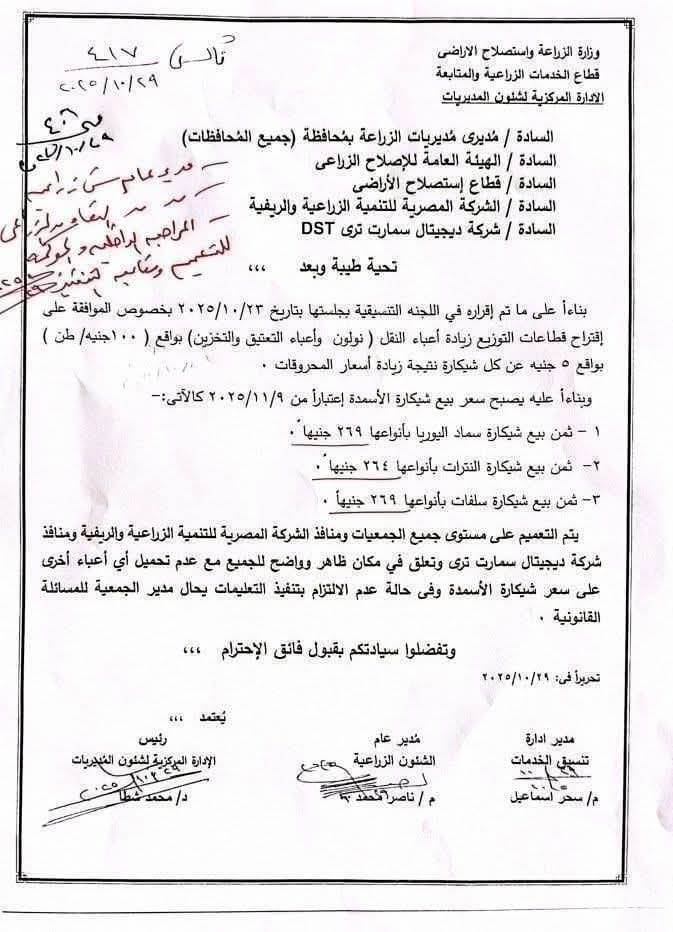 وزارة الزراعة واستصلاح الاراضى
قطاع الخدمات الزراعية والمتابعة
الادارة المركزية لشئون المديريات
٤١٧
٢٠٢٥/١٠/٢٩
السادة / مُديرى مُديريات الزراعة بمُحافظة (جميع المُحافظات)
السادة / الهيئة العامة للإصلاح الزراعى
السادة / قطاع إستصلاح الأراضى
السادة / الشركة المصرية للتنمية الزراعية والريفية
السادة / شركة ديجيتال سمارت ترى DST
تحية طيبة وبعد ،،،
بناءاً على ما تم إقراره في اللجنه التنسيقية بجلستها بتاريخ ٢٠٢٥/١٠/٢٣ بخصوص الموافقة على
إقتراح قطاعات التوزيع زيادة أعباء النقل ( نولون وأعباء التعتيق والتخزين) بواقع ( ١٠٠جنيه/ طن )
بواقع ٥ جنيه عن كل شيكارة نتيجة زيادة أسعار المحروقات ٠
وبناءاً عليه يصبح سعر بيع شيكارة الأسمدة إعتباراً من ٢٠٢٥/١١/٩ كالآتى:-
١ - ثمن بيع شيكارة سماد اليوريا بأنواعها ٢٦٩ جنيهاً ٠
٢- ثمن بيع شيكارة النترات بأنواعها ٢٦٤ جنيهاً ٠
٣- ثمن بيع شيكارة سلفات بأنواعها ٢٦٩ جنيهاً ٠
يتم التعميم على مستوى جميع الجمعيات ومنافذ الشركة المصرية للتنمية الزراعية والريفية ومنافذ
شركة ديجيتال سمارت ترى وتعلق في مكان ظاهر وواضح للجميع مع عدم تحميل أي أعباء أخرى
على سعر شيكارة الأسمدة وفى حالة عدم الالتزام بتنفيذ التعليمات يحال مدير الجمعية للمسائلة
القانونية ٠
وتفضلوا سيادتكم بقبول فائق الإحترام ،،،
تحريراً فى: ٢٠٢٥/١٠/٢٩
يُعتمد ،،،
مدير ادارة
تنسيق الخدمات
م/ سحر اسماعيل
مُدير عام
الشئون الزراعية
م / ناصر محمد
رئيس
الإدارة المركزية لشئون المُديريات
د/ محمد شطا
٢٠٢٥/١٠/٢٩